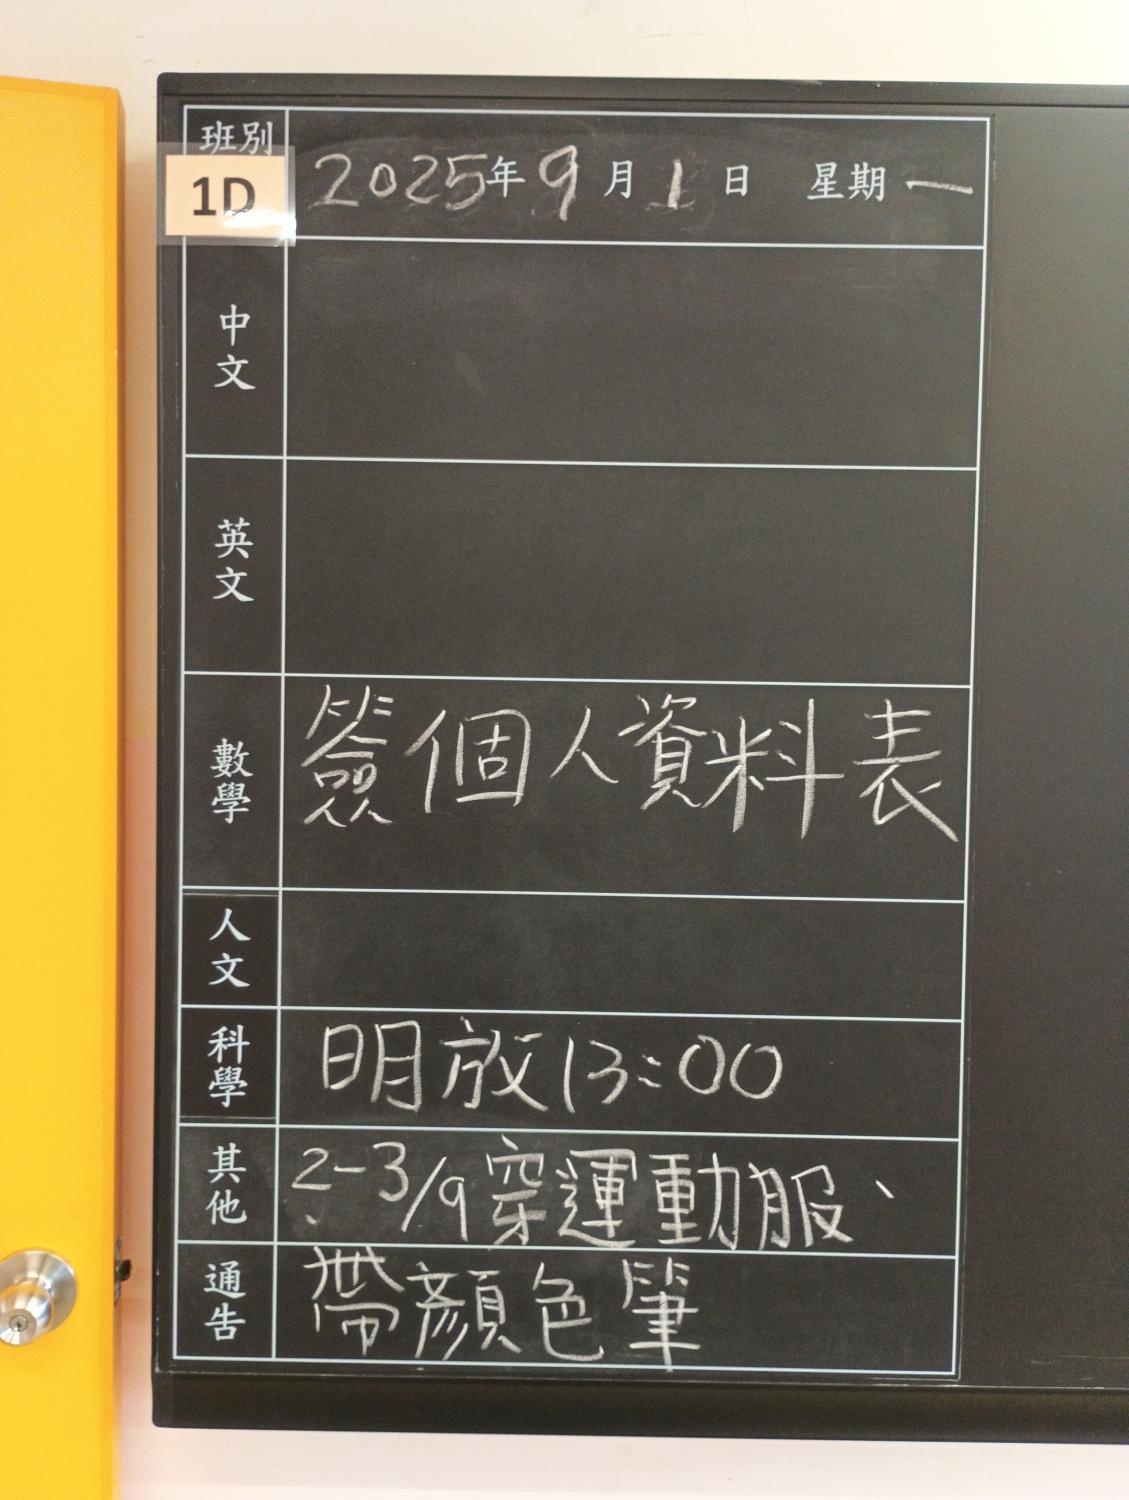 班別
1D
2025年9月1日 星期一
中文
英文
數學
簽個人資料表
人文
科學
明放13:00
其他
2-3/9穿運動服、
通告
帶顏色筆